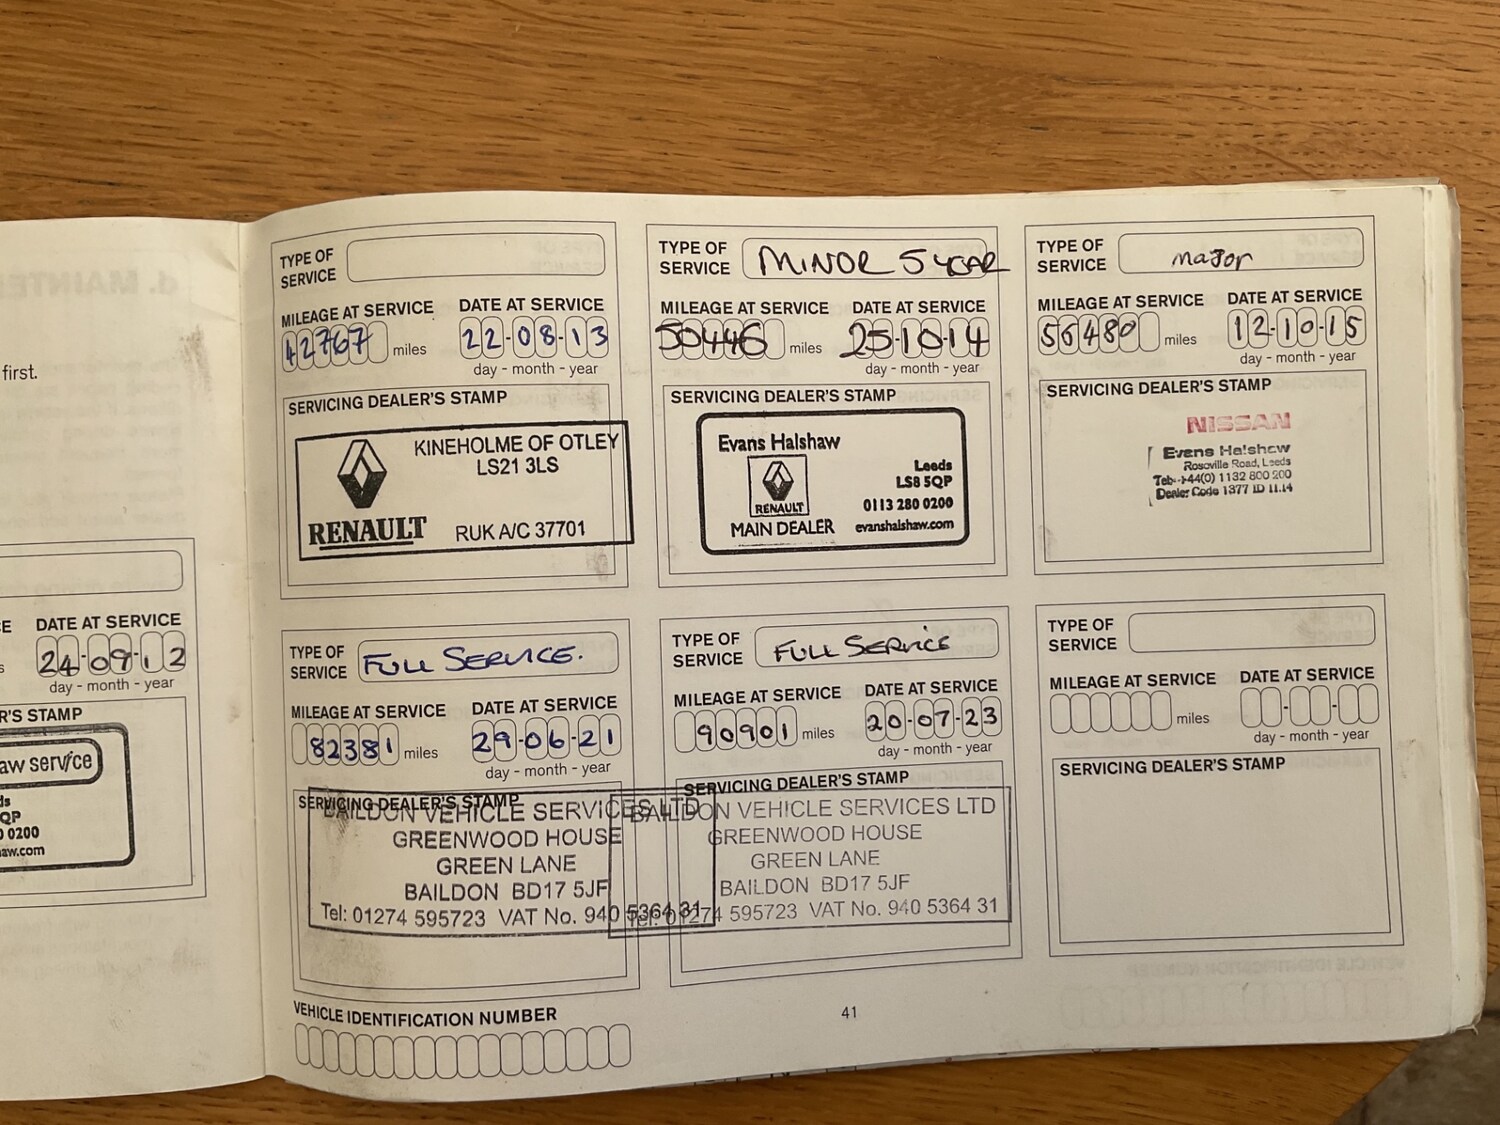 first.
E DATE AT SERVICE
s 24-09-12
day - month - year
R'S STAMP
aw service
ds
QP
0 0200
aw.com
TYPE OF
SERVICE
MILEAGE AT SERVICE DATE AT SERVICE
42767 miles 22-08-13
day - month - year
SERVICING DEALER'S STAMP
KINEHOLME OF OTLEY
LS21 3LS
RENAULT RUK A/C 37701
TYPE OF
SERVICE MINOR 5 YEAR
MILEAGE AT SERVICE DATE AT SERVICE
50446 miles 25-10-14
day - month - year
SERVICING DEALER'S STAMP
Evans Halshaw
RENAULT
MAIN DEALER
Leeds
LS8 5QP
0113 280 0200
evanshalshaw.com
TYPE OF
SERVICE major
MILEAGE AT SERVICE DATE AT SERVICE
56480 miles 12-10-15
day - month - year
SERVICING DEALER'S STAMP
NISSAN
Evans Halshaw
Roseville Road, Leeds
Tel: +44(0) 1132 800 200
Dealer Code 1377 ID 11.14
TYPE OF
SERVICE FULL SERVICE.
MILEAGE AT SERVICE DATE AT SERVICE
82381 miles 29-06-21
day - month - year
SERVICING DEALER'S STAMP
BAILDON VEHICLE SERVICES LTD
GREENWOOD HOUSE
GREEN LANE
BAILDON BD17 5JF
Tel: 01274 595723 VAT No. 940 5364 31
TYPE OF
SERVICE FULL SERVICE
MILEAGE AT SERVICE DATE AT SERVICE
90901 miles 20-07-23
day - month - year
SERVICING DEALER'S STAMP
BAILDON VEHICLE SERVICES LTD
GREENWOOD HOUSE
GREEN LANE
BAILDON BD17 5JF
Tel: 01274 595723 VAT No. 940 5364 31
TYPE OF
SERVICE
MILEAGE AT SERVICE DATE AT SERVICE
miles - -
day - month - year
SERVICING DEALER'S STAMP
VEHICLE IDENTIFICATION NUMBER
41